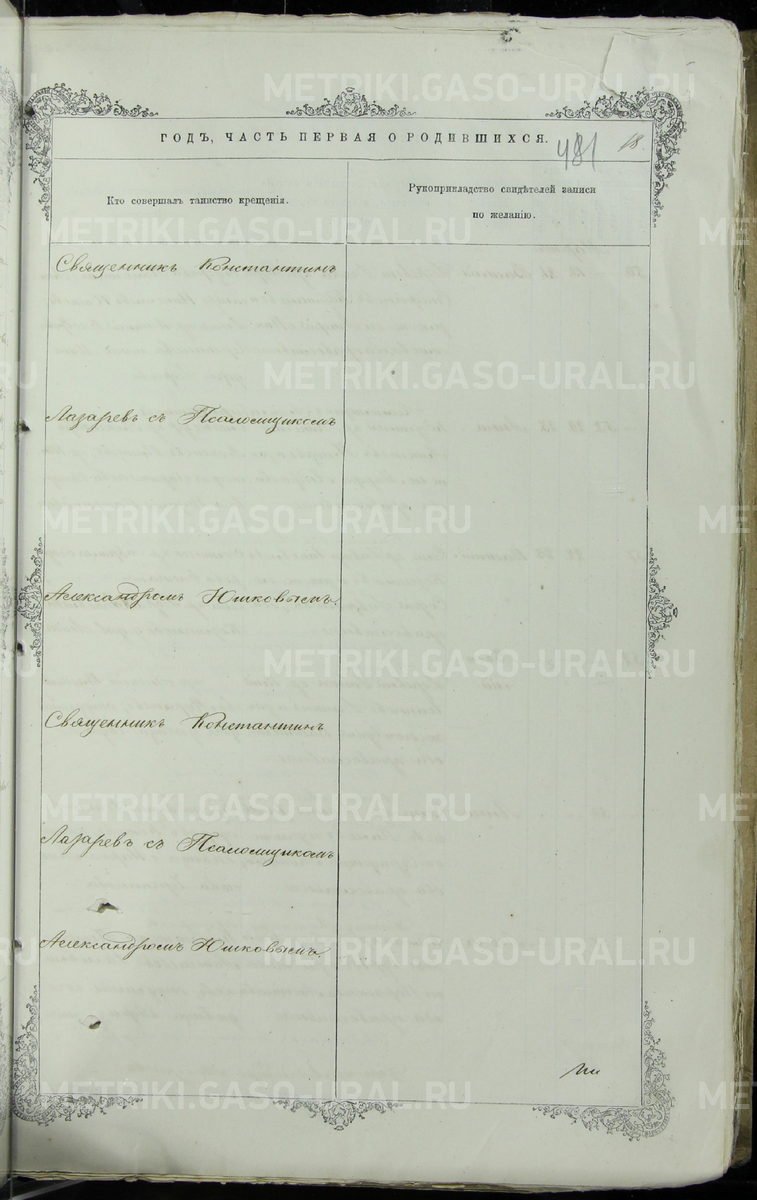 METRIKI.GASO-URAL.RU
ГОДЪ, ЧАСТЬ ПЕРВАЯ О РОДИВШИХСЯ.
481 18
Кто совершалъ таинство крещенія.
Рукоприкладство свидѣтелей записи
по желанію.
Священникъ Константинъ
Лазаревъ съ Псаломщикомъ
Александромъ Юшковымъ.
Священникъ Константинъ
Лазаревъ съ Псаломщикомъ
Александромъ Юшковымъ.